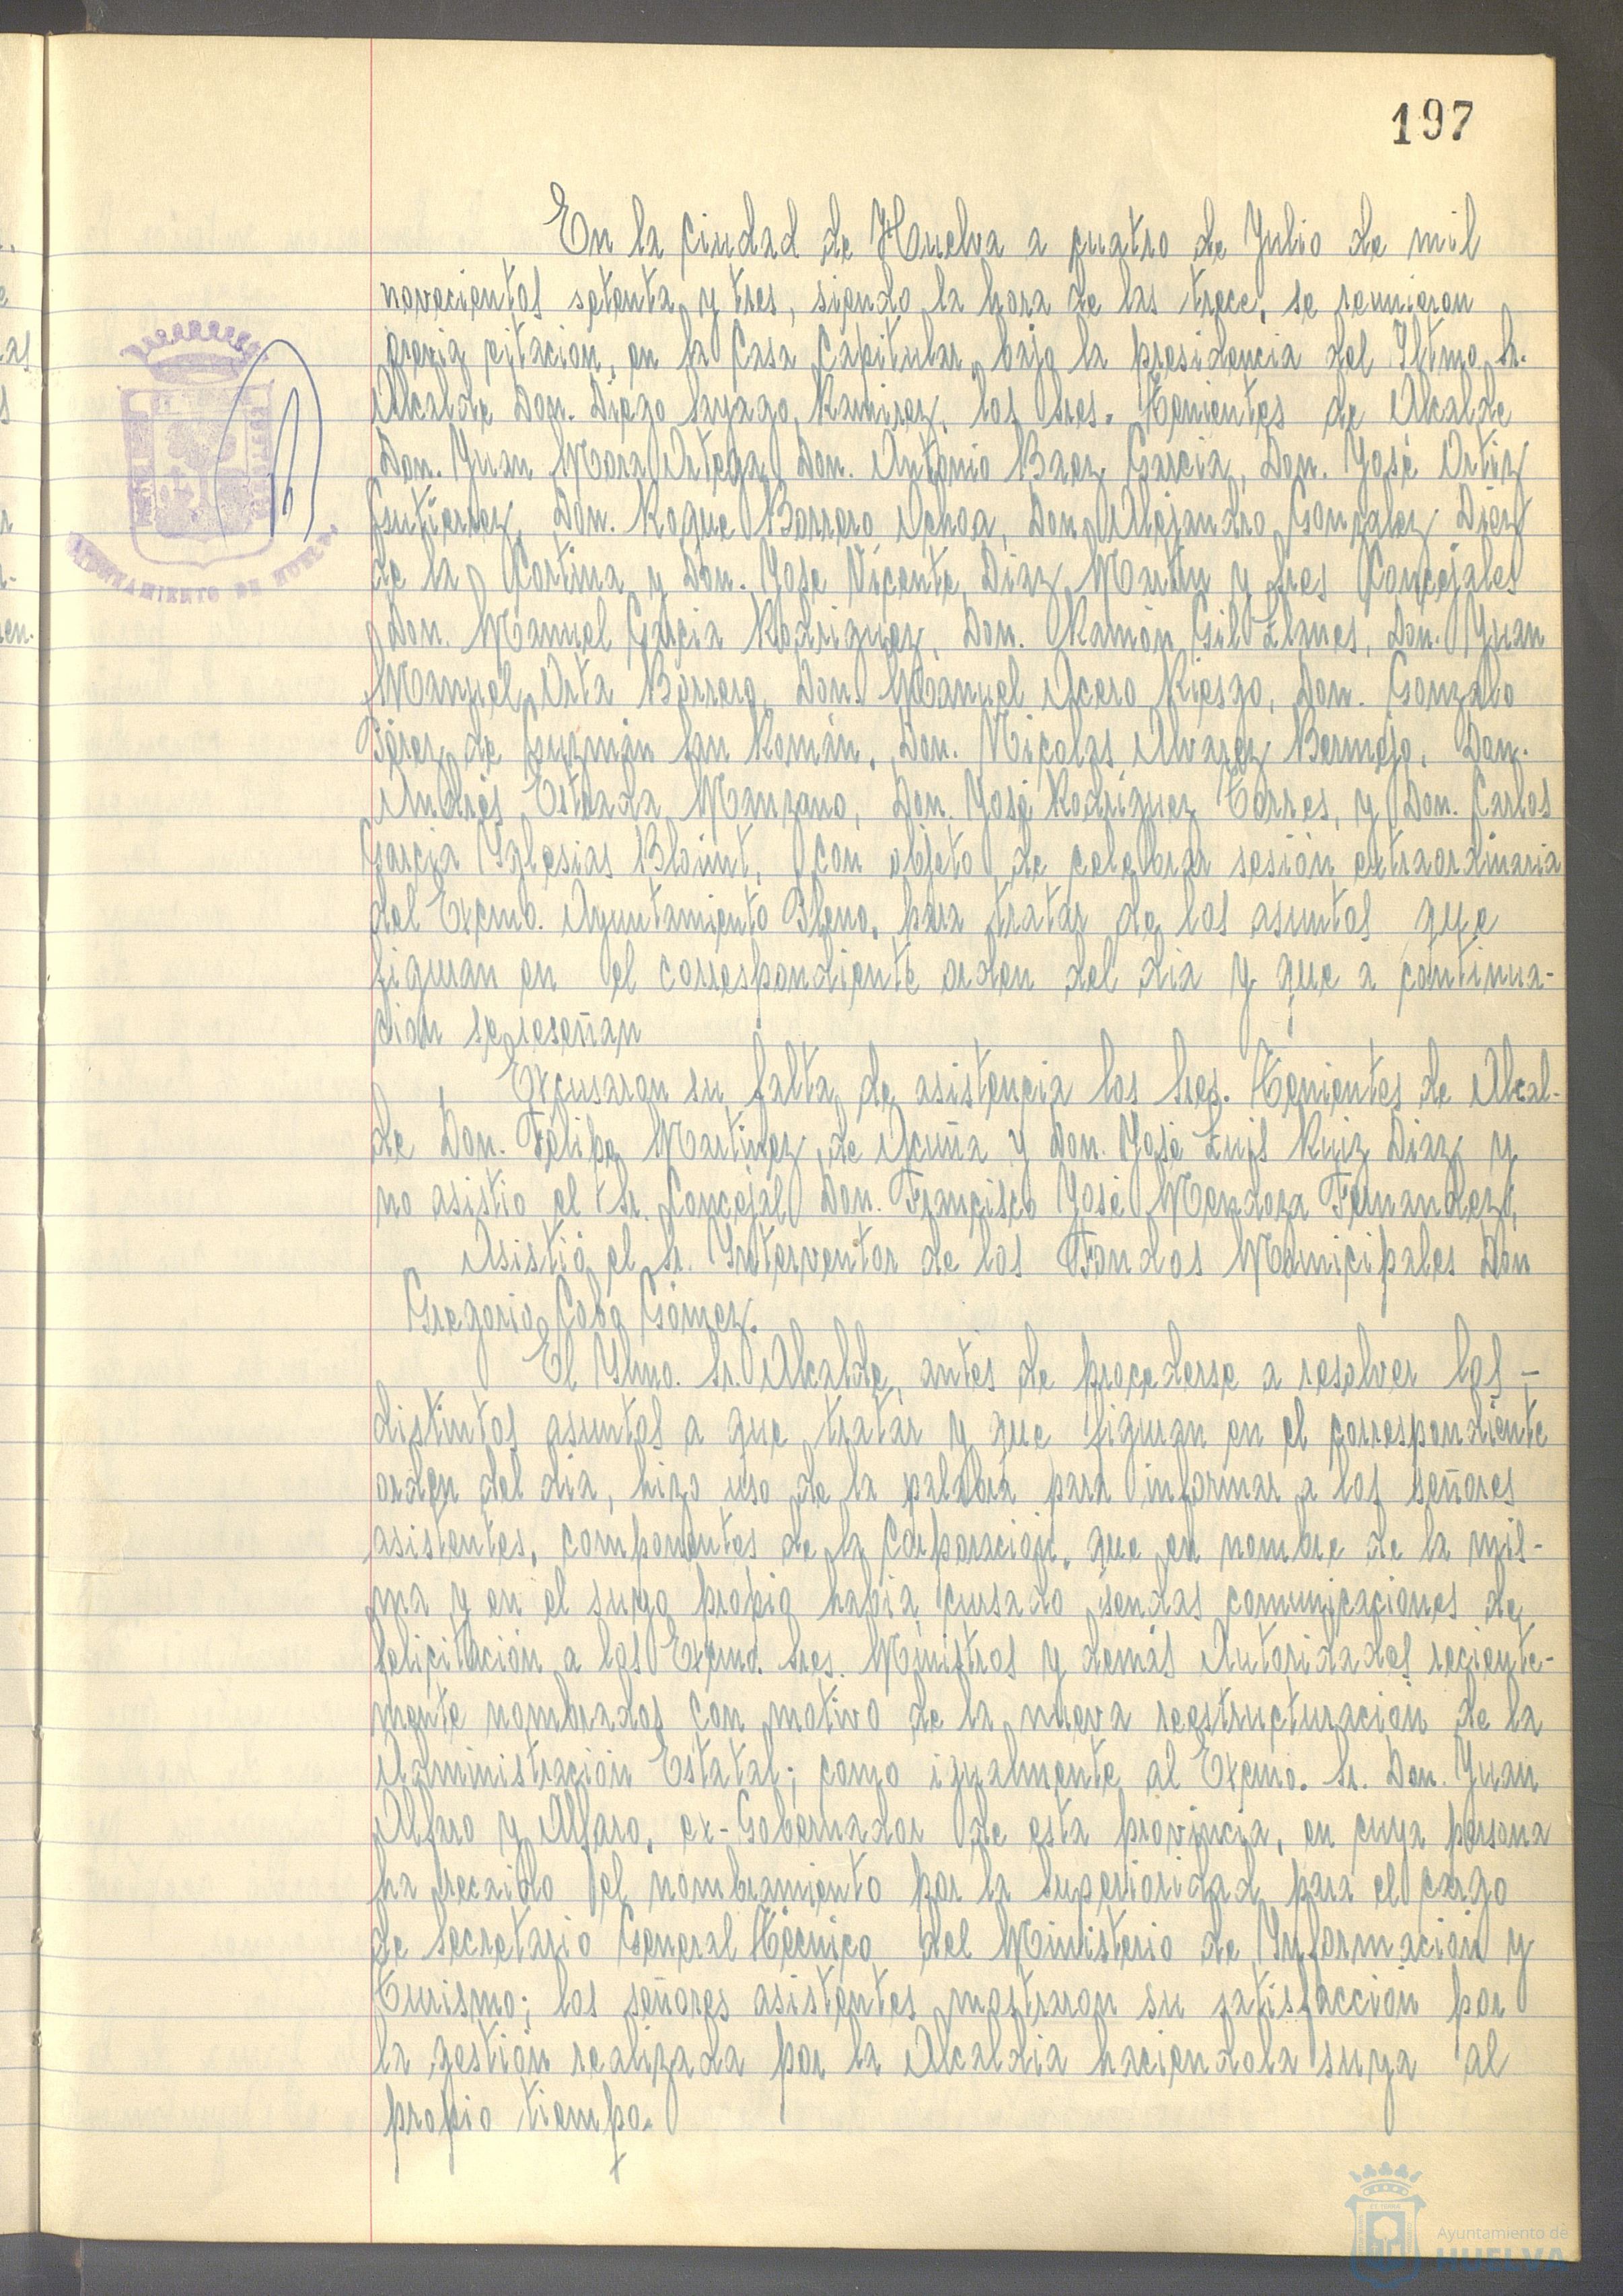 197
En la ciudad de Huelva a cuatro de Julio de mil
novecientos setenta y tres, siendo la hora de las trece, se reunieron
previa citación, en la Casa Capitular bajo la presidencia del Iltmo. Sr.
Alcalde Don. Diego Sayago Ramirez, los Sres. Tenientes de Alcalde
Don. Juan Mora Ortega, Don. Antonio Baez Garcia, Don. José Ortiz
Gutierrez, Don. Roque Borrero Ochoa, Don Alejandro Gonzalez Diez
de la Cortina y Don. José Vicente Diaz Martin y Sres Concejales
Don. Manuel Garcia Rodriguez, Don. Ramón Gil Llanes, Don. Juan
Manuel Orta Borrero, Don. Manuel Acero Riesgo, Don. Gonzalo
Pérez de Guzmán San Román, Don. Nicolas Alvarez Bermejo, Don.
Andrés Estrada Manzano, Don. José Rodriguez Torres, y Don. Carlos
Garcia Yglesias Blount, con objeto de celebrar sesión extraordinaria
del Excmo. Ayuntamiento Pleno, para tratar de los asuntos que
figuran en el correspondiente orden del dia y que a continua-
ción se reseñan
Excusaron su falta de asistencia los Sres. Tenientes de Alcal-
de Don. Felipe Martinez de Acuña y Don. José Luis Ruiz Diaz y
no asistio el Sr. Concejal Don. Francisco José Mendoza Fernandez.
Asistió el Sr. Interventor de los Fondos Municipales Don
Gregorio Cobo Gómez.
El Ylmo. Sr. Alcalde, antes de procederse a resolver los -
distintos asuntos a que tratar y que figuran en el correspondiente
orden del dia, hizo uso de la palabra para informar a los señores
asistentes, componentes de la Corporación, que en nombre de la mis-
ma y en el suyo propio habia cursado sendas comunicaciones de
felicitación a los Excmo. Sres. Ministros y demás Autoridades reciente-
mente nombrados con motivo de la nueva reestructuración de la
Administración Estatal; como igualmente al Excmo. Sr. Don. Juan
Alfaro y Alfaro, ex-Gobernador de esta provincia, en cuya persona
ha recaido el nombramiento por la Superioridad para el cargo
de Secretario General Técnico del Ministerio de Información y
Turismo; los señores asistentes mostraron su satisfacción por
la gestión realizada por la Alcaldia haciendola suya al
propio tiempo.
AYUNTAMIENTO DE HUELVA
Ayuntamiento de
HUELVA